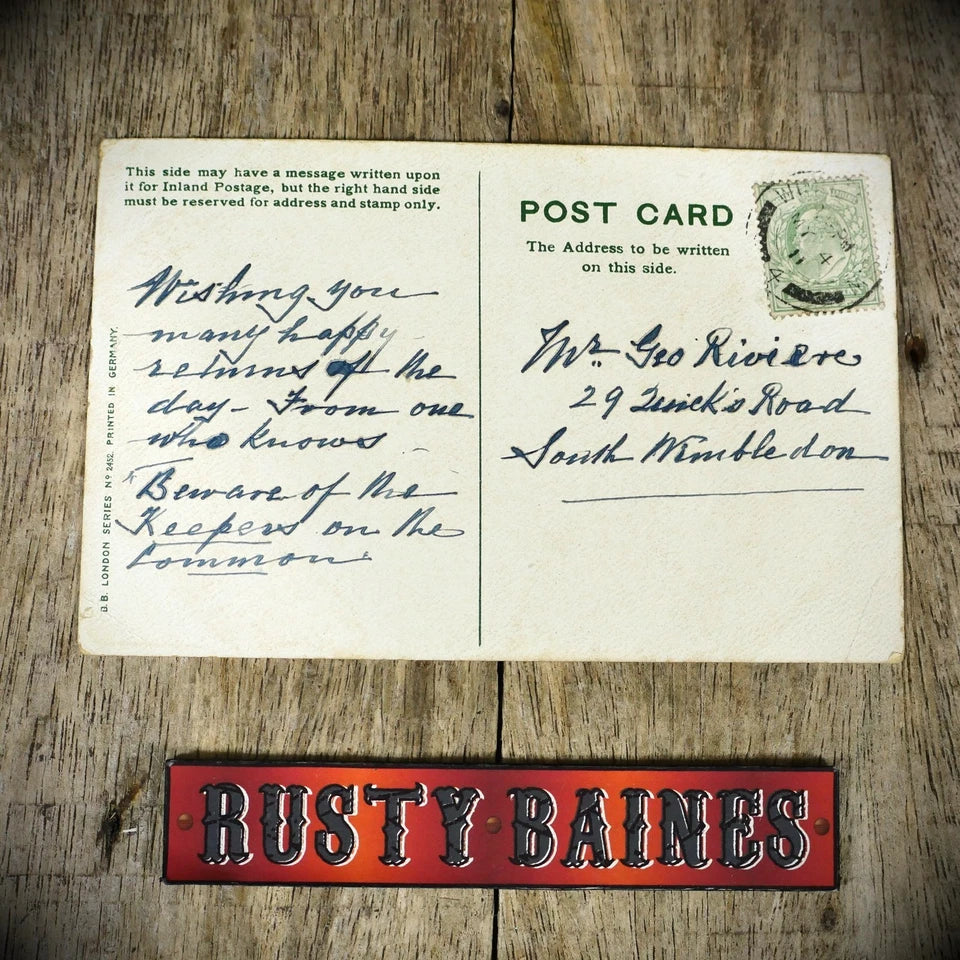 This side may have a message written upon
it for Inland Postage, but the right hand side
must be reserved for address and stamp only.
Wishing you
many happy
returns of the
day - From one
who knows
Beware of the
Keepers on the
Common
B.B. LONDON SERIES Nº 2452. PRINTED IN GERMANY.
POST CARD
The Address to be written
on this side.
Mr. Geo Riviere
29 Quick's Road
South Wimbledon
RUSTY BAINES